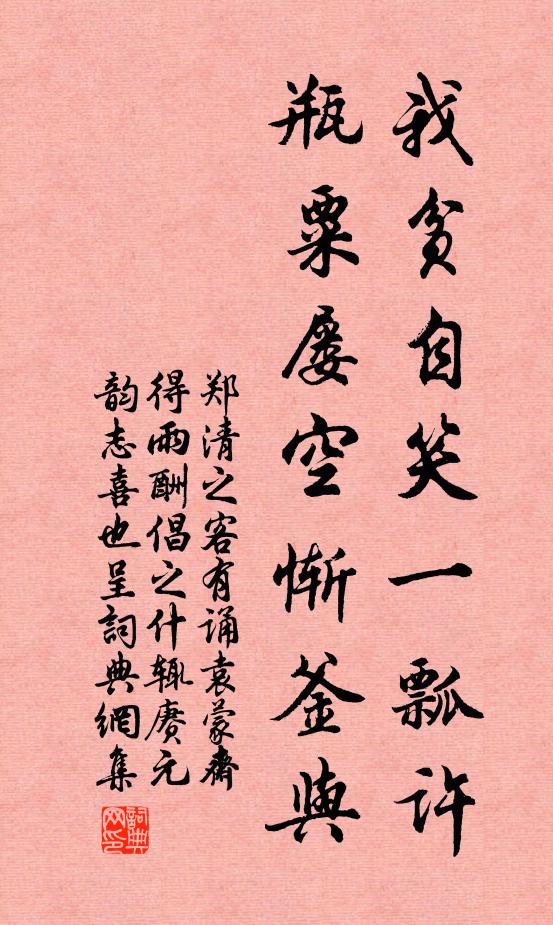 我贫自笑一瓢许
瓶粟屡空惭釜與
郑清之客有诵袁蒙齋
得雨酬倡之什辄赓元
韵志喜也呈詞典網集
詞典网印